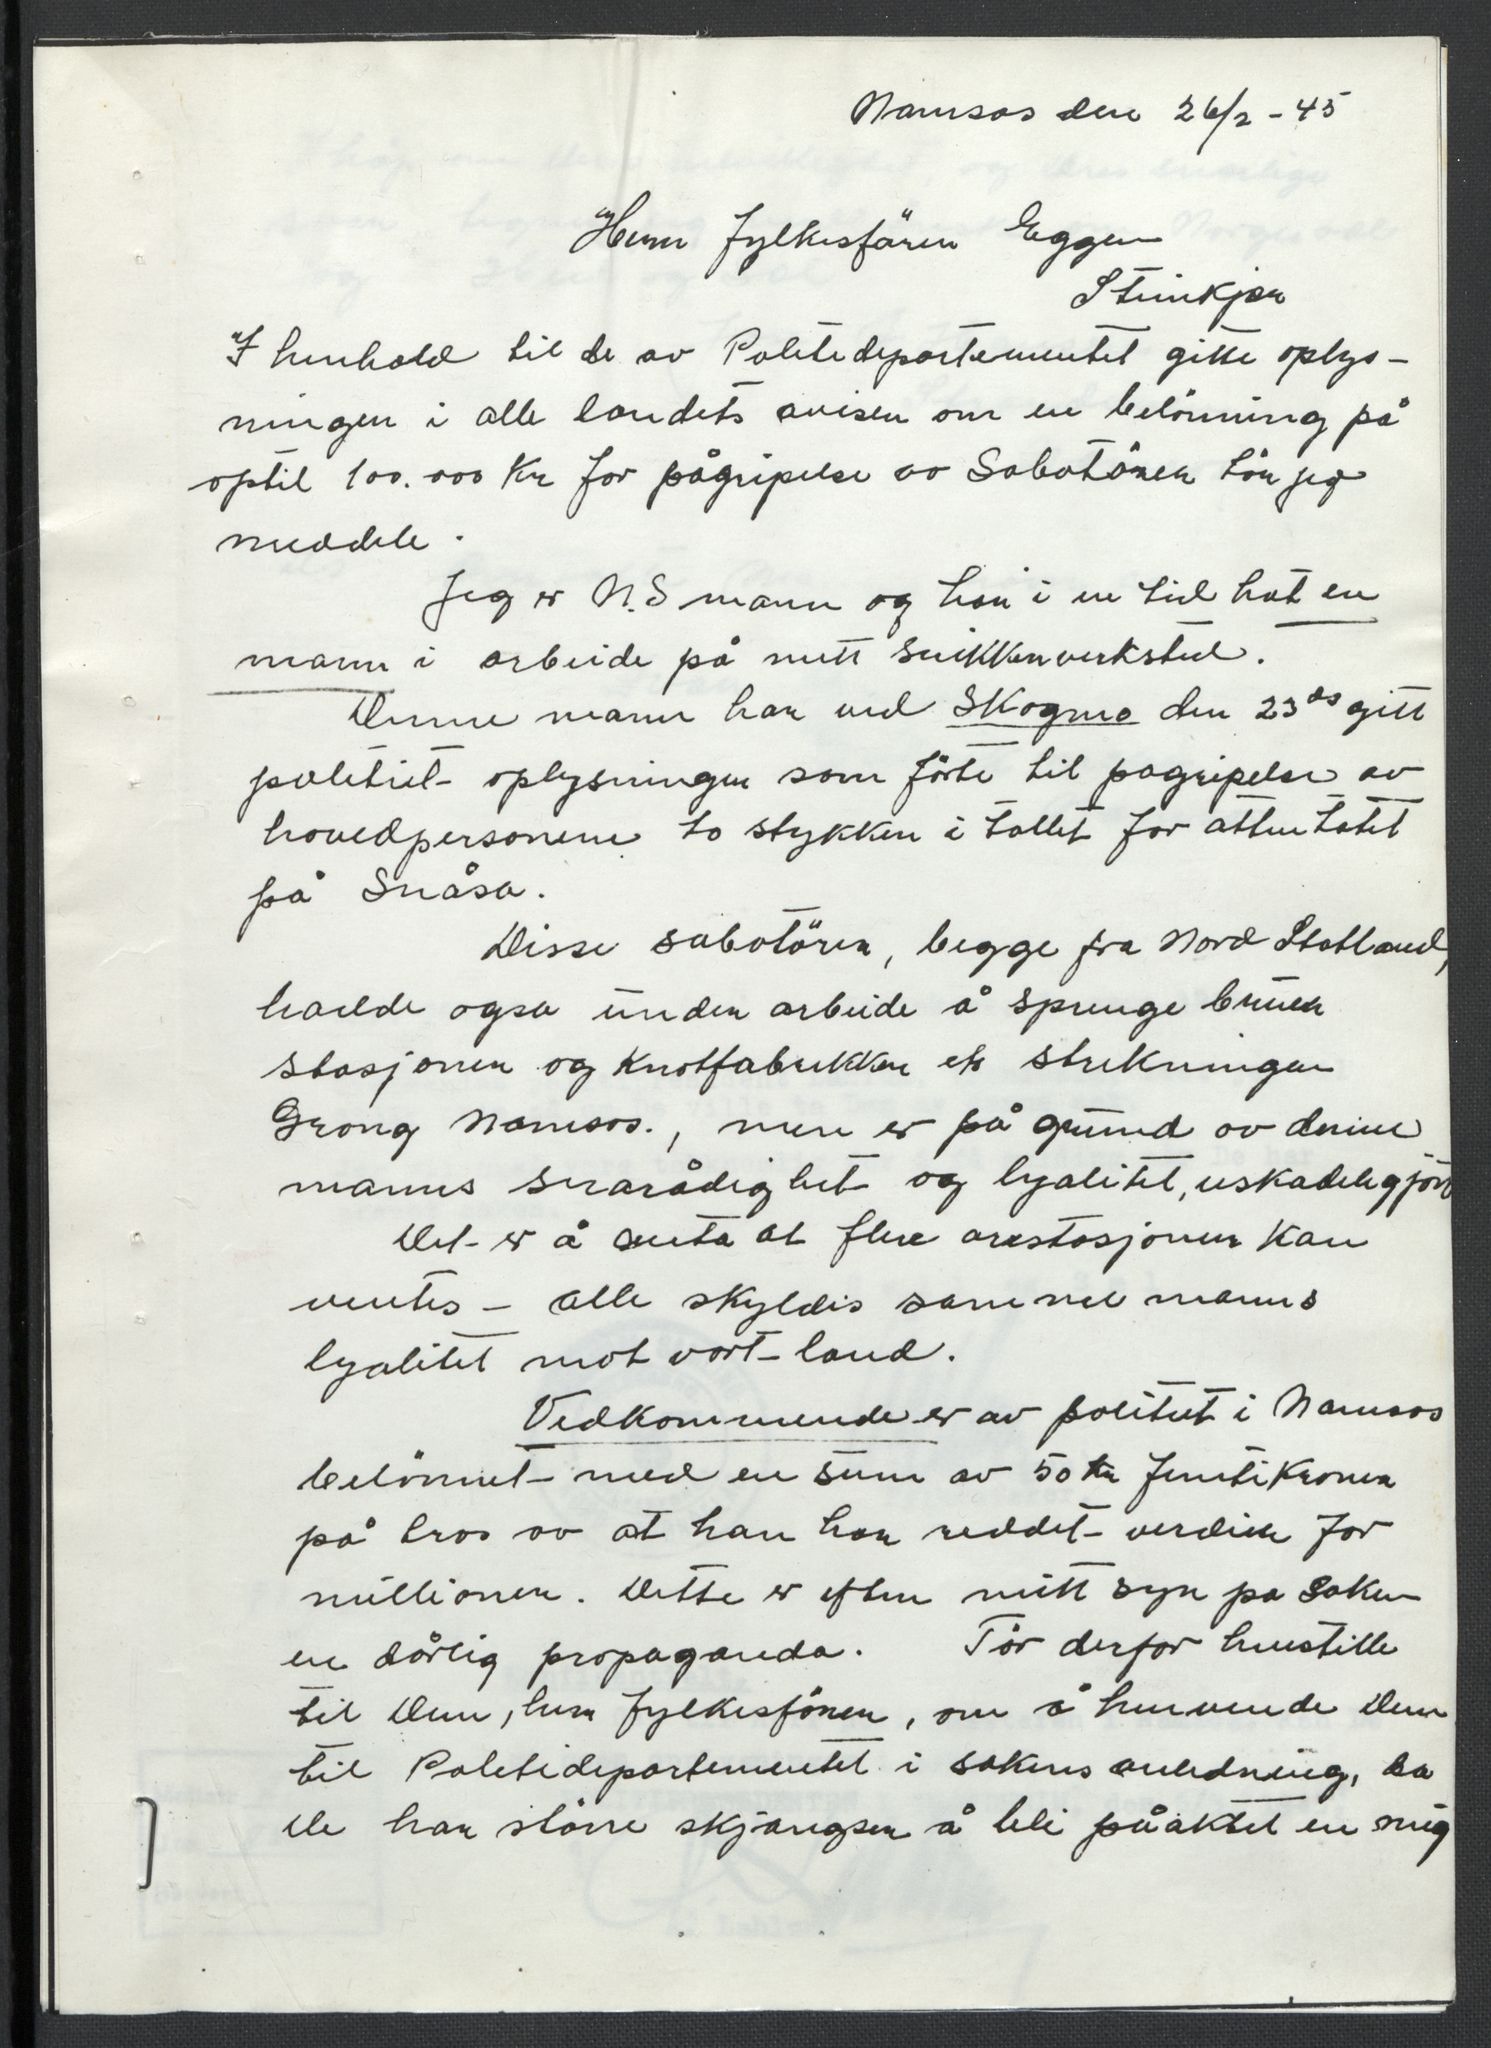 Namsos den 26/2 - 45
Herr Fylkesfören Eggen
Steinkjer
I henhold til de av Politidepartementet gitte oplys-
ninger i alle landets aviser om en belönning på
optil 100.000 Kr for pågripelse av Sabotörer tör jeg
meddele.
Jeg er N.S mann og har i en tid hat en
mann i arbeide på mitt snikkerverksted.
Denne mann har ved Skogmo den 23 ds gitt
politiet oplysninger som förte til pagripelse av
hovedpersonene to stykker i tallet for attentatet
på Snåsa.
Disse sabotörer, begge fra Nord Statland,
hadde ogsa under arbeide å sprenge bruer
stasjoner og Knotfabrikker på strekningen
Grong Namsos., men er på grund av denne
manns snarådighet og lyalitet, uskadeligjört
Det er å anta at flere arestasjoner kan
ventes - alle skyldis samme manns
lyalitet mot vort land.
Vedkommende er av politiet i Namsos
belönnet med en sum av 50 kr femti Kroner
på tros av at han har reddet verdier for
millioner. Dette er efter mitt syn pa saken
en dårlig propaganda. Tör derfor henstille
til Dem, herr Fylkesförer, om å henvende Dem
til Politidepartementet i sakens anledning, da
De har större skjangser å bli påaktet en mig